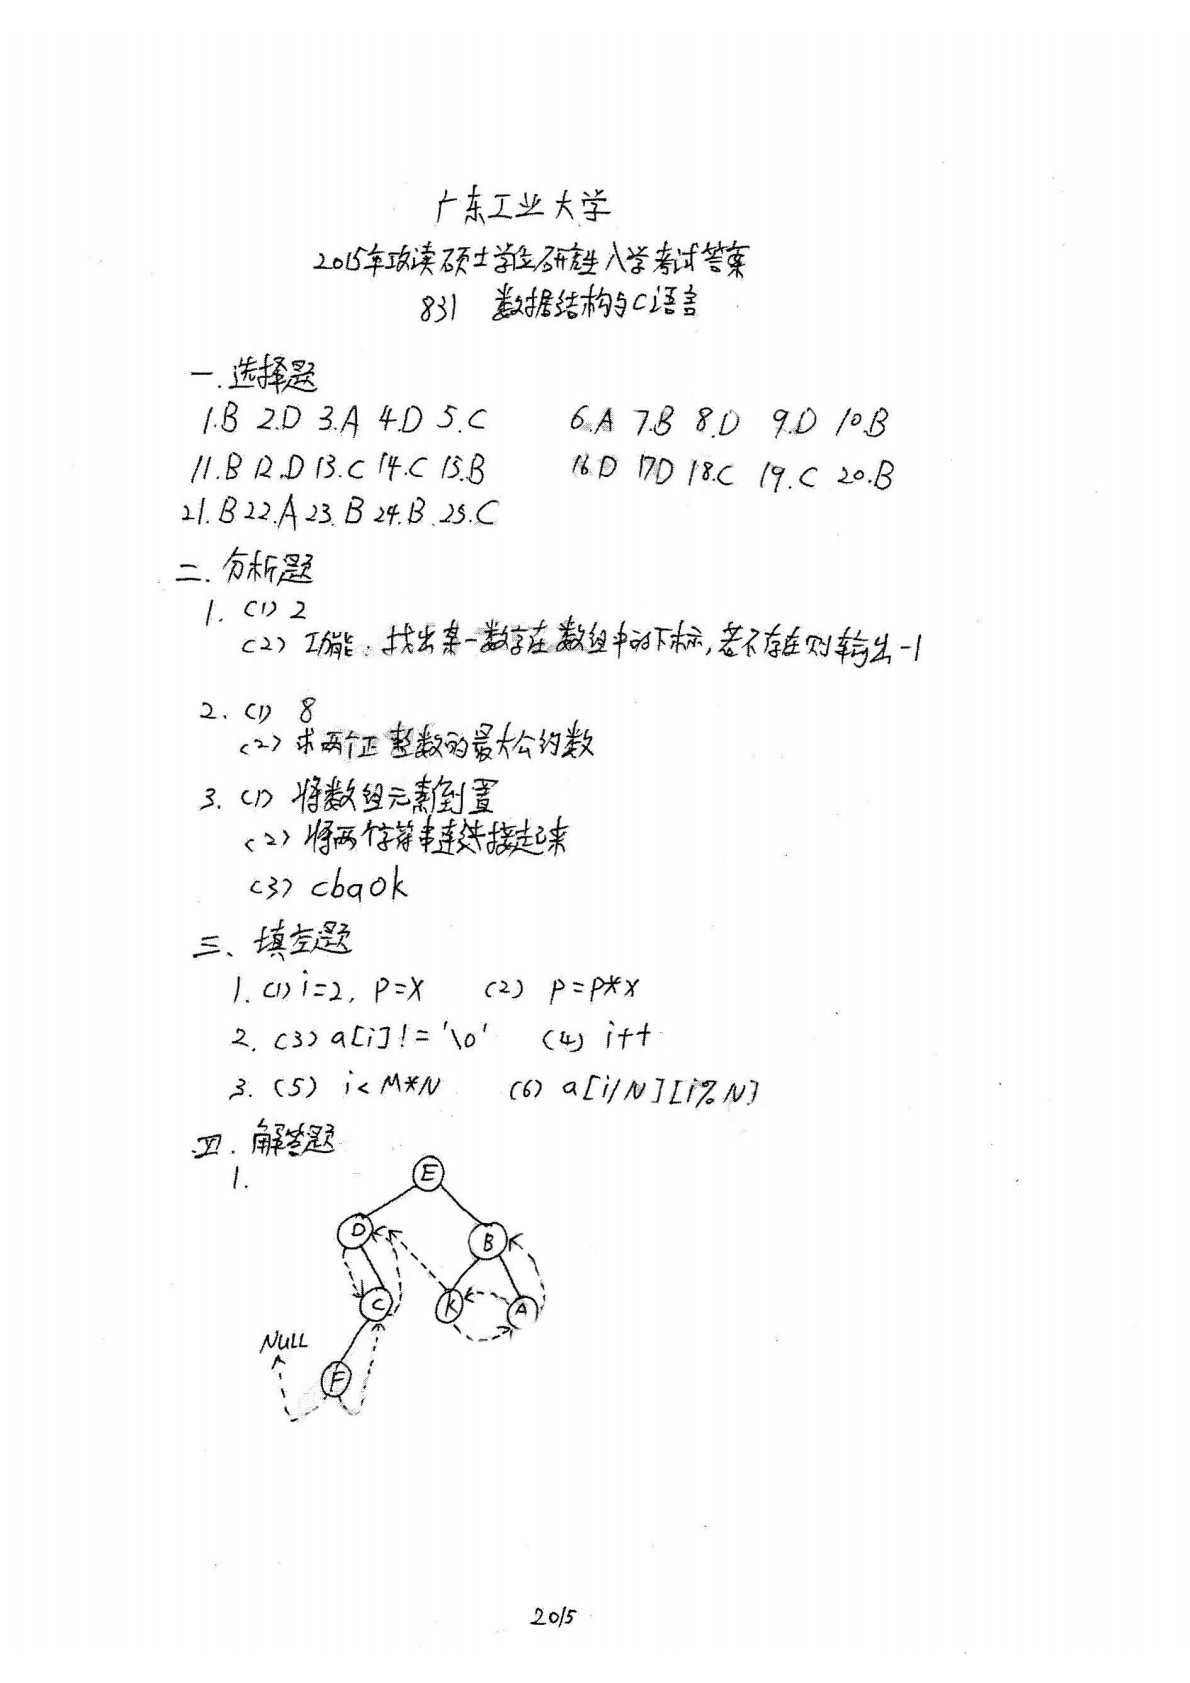 广东工业大学
2015年攻读硕士学位研究生入学考试答案
831 数据结构与C语言
一.选择题
1.B 2.D 3.A 4.D 5.C 6.A 7.B 8.D 9.D 10.B
11.B 12.D 13.C 14.C 15.B 16.D 17D 18.C 19.C 20.B
21.B 22.A 23.B 24.B 25.C
二.分析题
1. (1) 2
(2) 功能:找出某一数字在数组中的下标,若不存在则输出-1
2. (1) 8
(2) 求两个正整数的最大公约数
3. (1) 将数组元素倒置
(2) 将两个字符串连接起来
(3) cbaok
三、填空题
1. (1) i=2, p=x (2) p=p*x
2. (3) a[i]!='\0' (4) i++
3. (5) i<M*N (6) a[i/N][i%N]
四.解答题
1.
E
D B
C K A
NULL
F
2015